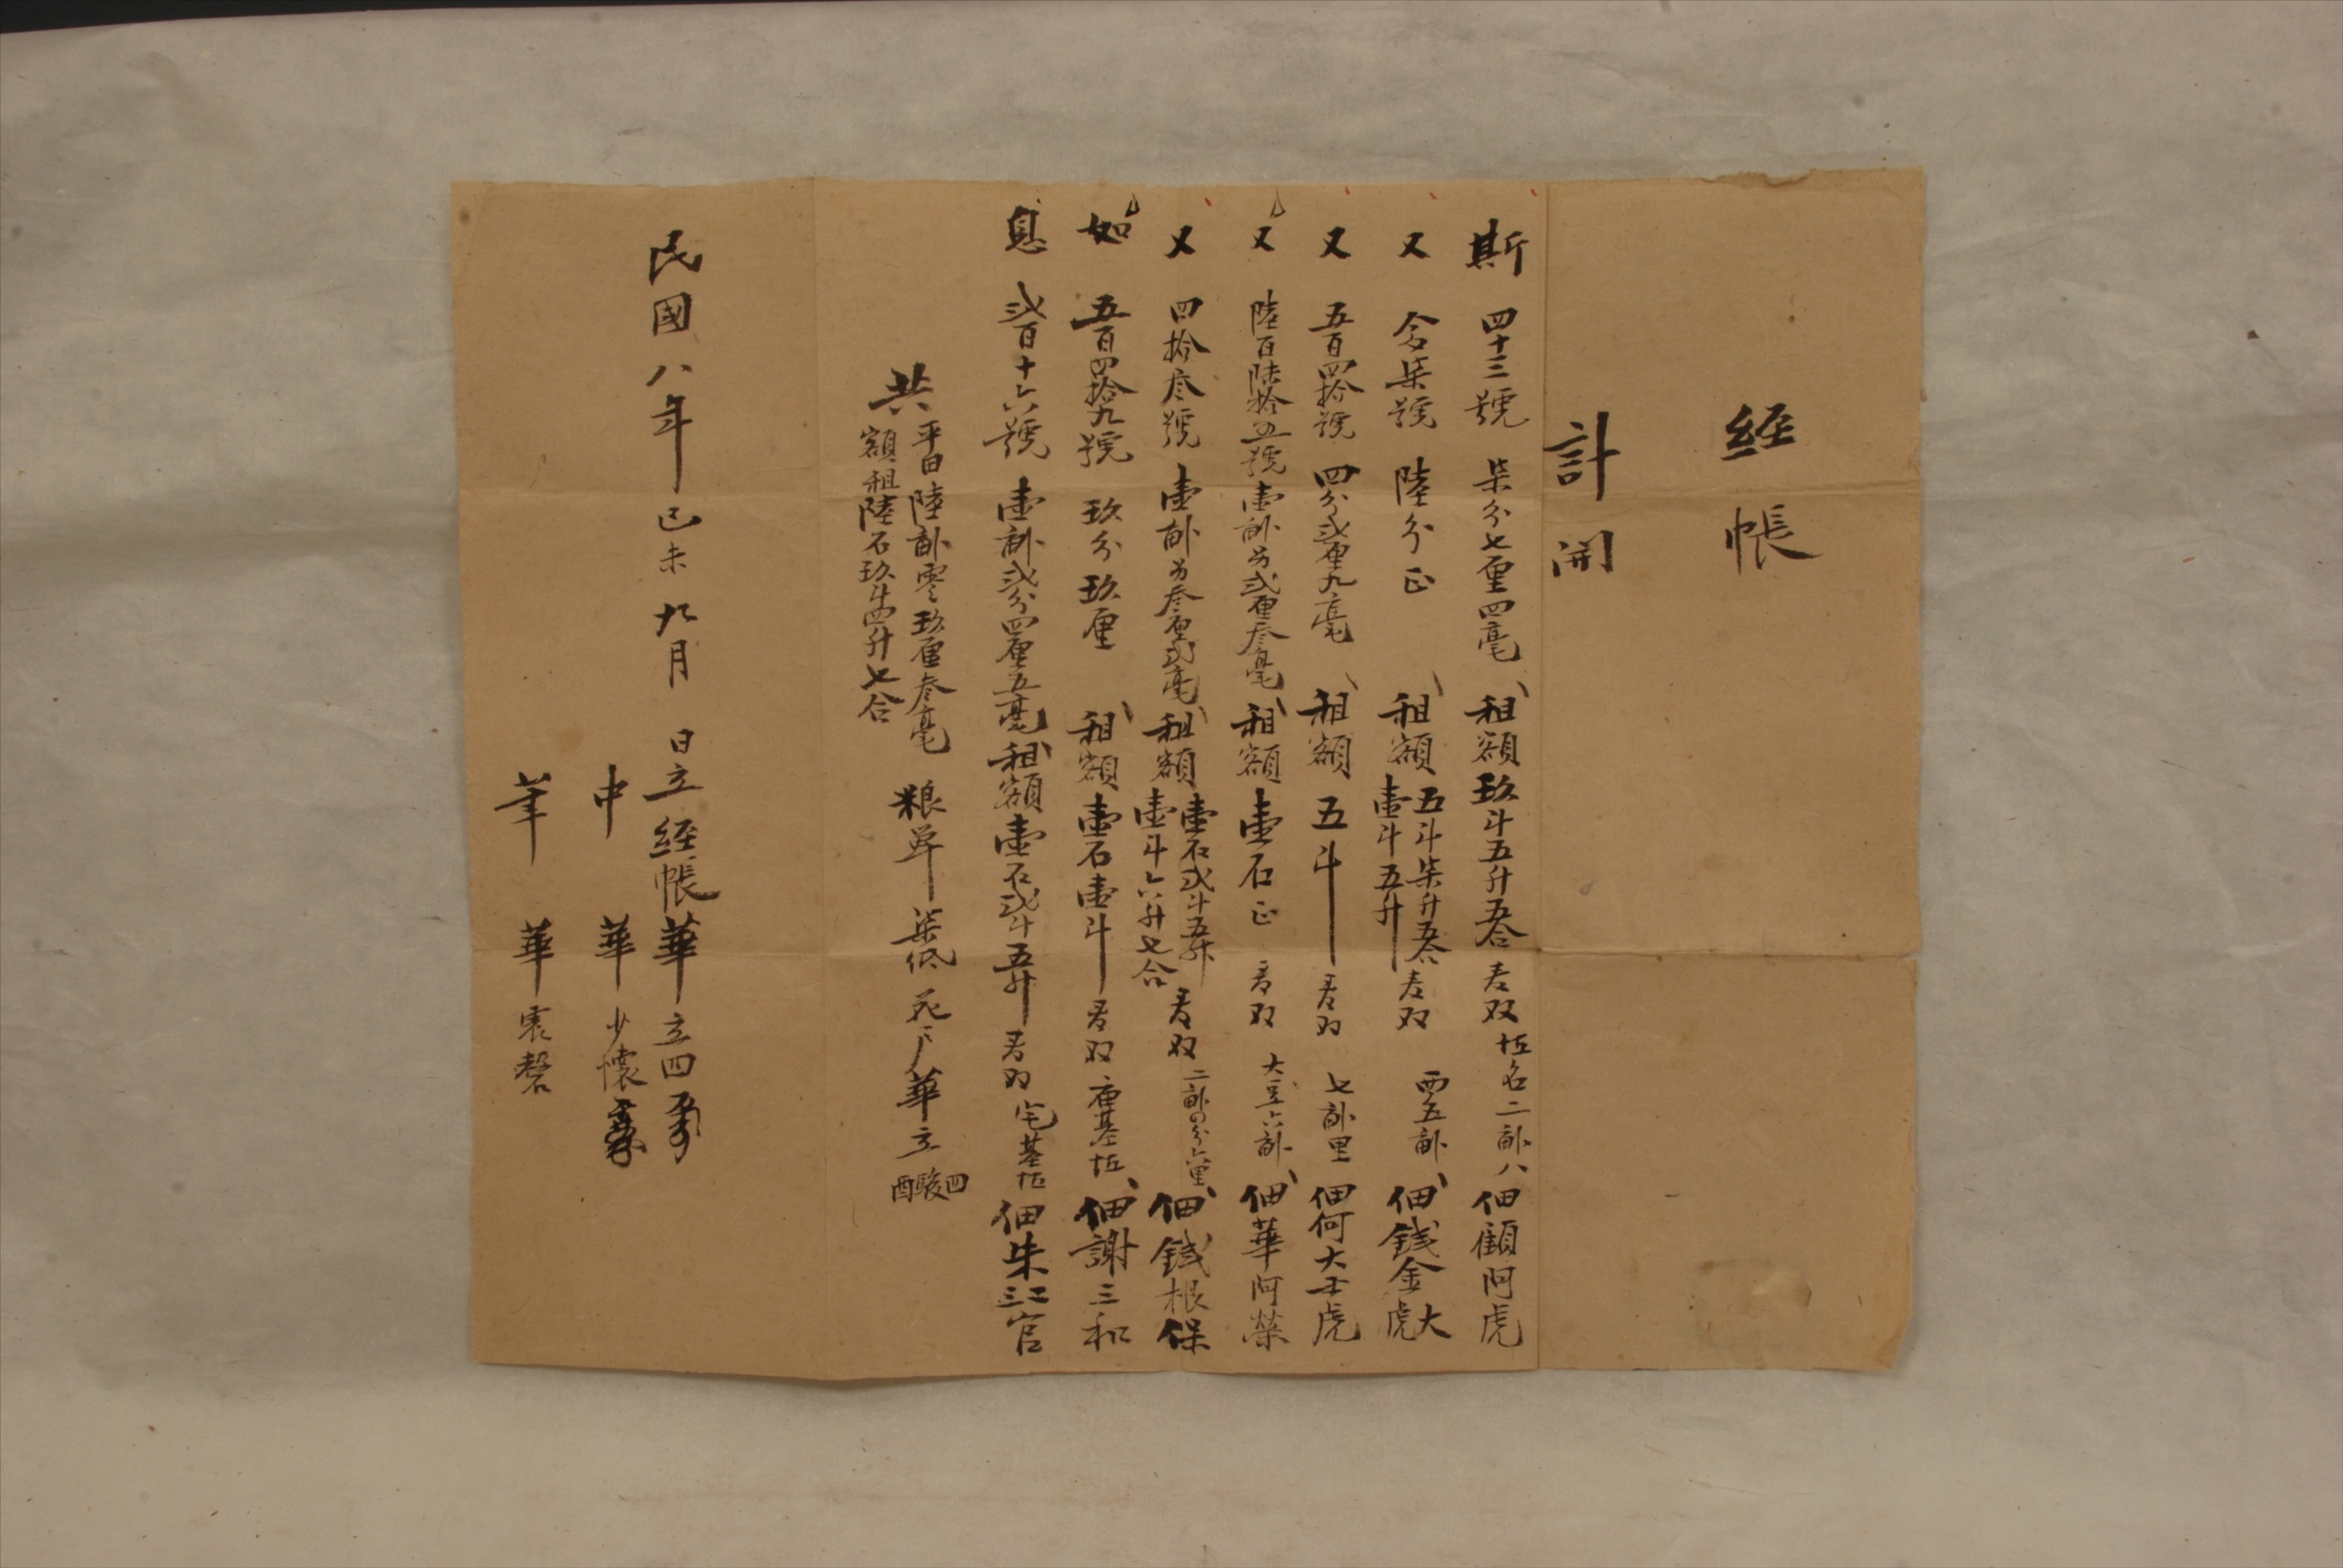 経帳
計開
斯 四十三號 柒分七厘四毫 租額玖斗五升五合 坵名二畝八 佃顧阿虎
又 念柒號 陸分正 租額五斗柒升五合 壹斗五升 西五畝 佃錢金大虎
又 五百四拾號 四分弍厘九毫 租額五斗 七畝里 佃何大虎
又 陸百陸拾五號 壹畝另弍厘叁毫 租額壹石正 大豆六畝 佃華阿榮
又 四拾叁號 壹畝另叁厘弍毫 租額壹石弍斗五升 壹斗六升七合 二畝四分六里 佃錢根保
如 五百四拾九號 玖分玖厘 租額壹石壹斗 基坵 佃謝三和
息 弍百十六號 壹畝弍分四厘五毫 租額壹石弍斗五升 宅基坵 佃朱江官
共平田陸畝零玖厘叁毫
額租陸石玖斗四升七合
粮单柒纸 華立四
民國八年己未九月 日立経帳華立四
中 華少懷
筆 華宸磬